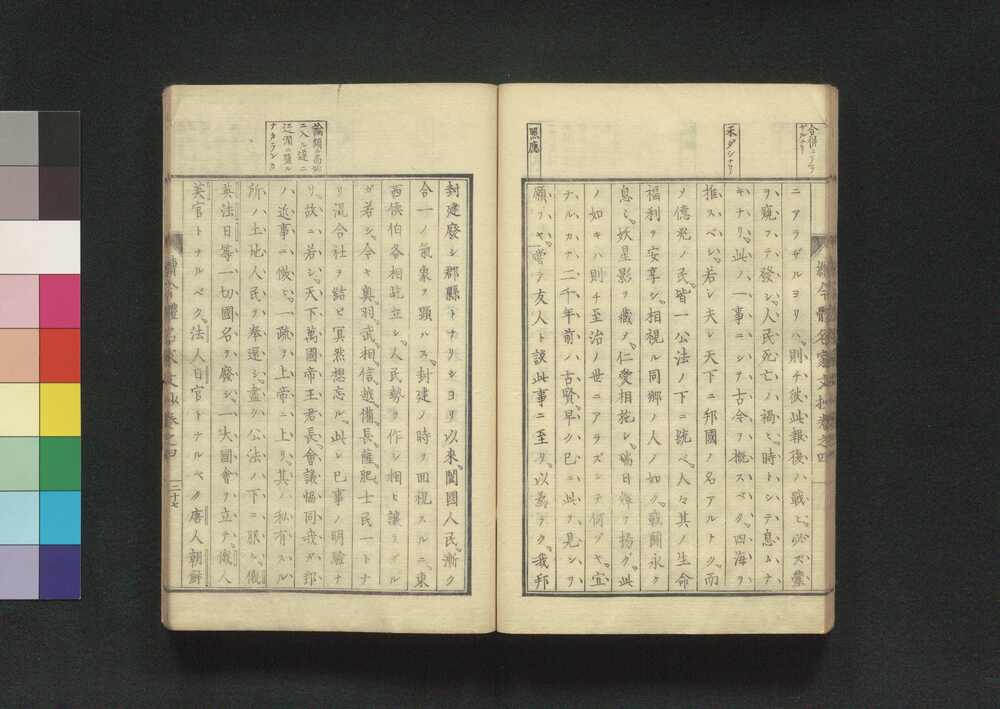 ニアラザルヨリハ則チ彼此報復ノ戰ヒ必ズ釁
ヲ窺フテ發シ人民死亡ノ禍ヒ時トシテ息ムナ
キナリ此ノ一事ニシテ古今ヲ概スベク四海ヲ
推スベシ若シ夫レ天下ニ邦國ノ名アルトク而
ソ億兆ノ民皆一公法ノ下ニ統ベ人々其ノ生命
福利ヲ安享シ相視ル同鄉ノ人ノ如ク戰鬪永ク
息ミ妖星影ヲ藏メ仁愛相施シ瑞日輝ヲ揚グ此
ノ如キハ則チ至治ノ世ニアラズシテ何ゾヤ宜
ナルカナ二千年前ノ古賢早ク已ニ此ヲ見ンヿヲ
願フヤ嘗テ友人ト談此事ニ至リ以爲ラク我邦
照應
續今體名家文抄卷之四
封建廢シ郡縣トナリシヨリ以來闔國人民漸ク
合一ノ氣象ヲ顯ハス封建ノ時ヲ回視スルニ東
西侯伯各相屹立シ人民勢ヲ作シ相ヒ讓ラザル
ガ若シ今ヤ奧羽武相信越備長薩肥士民一トナ
リ混合社ヲ結ビ冥然想忘ル此レ已事ノ明驗ナ
リ故ニ若シ天下萬國帝王君長會議恊同我ガ邦
ノ近事ニ傚ヒ一疏ヲ上帝ニ上リ其ノ私有スル
所ノ土地人民ヲ奉還シ盡ク公法ノ下ニ服シ俄
英法日等一切國名ヲ廢シ一大國會ヲ立テ俄人
英官トナルベク法人日官トナルベク唐人朝鮮
續今體名家文抄卷之四
二十七